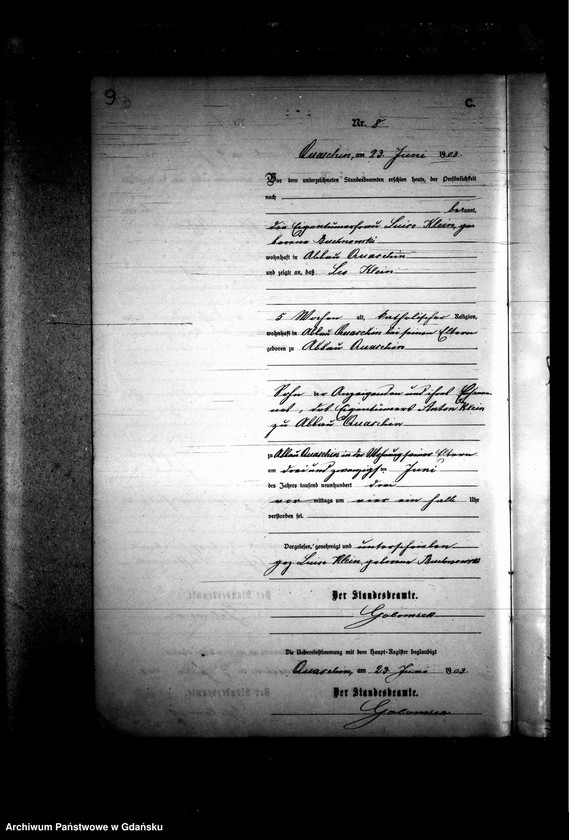 9
C.
Nr. 8
Quaschin, am 23. Juni 1903
Vor dem unterzeichneten Standesbeamten erschien heute, der Persönlichkeit
nach
bekannt,
die Eigentümerfrau Luise Klein ge
borene
wohnhaft in Abbau Quaschin
und zeigte an, daß Leo Klein
5 Wochen alt, katholischer Religion,
wohnhaft in Abbau Quaschin bei seinen Eltern
geboren zu Abbau Quaschin
Sohn der Anzeigenden und ihres Ehema
nnes, des Eigentümers Anton Klein
zu Abbau Quaschin
zu Abbau Quaschin in der Wohnung seiner Eltern
am drei und zwanzigsten Juni
des Jahres tausend neunhundert drei
vor mittags um vier ein halb Uhr
verstorben sei.
Vorgelesen, genehmigt und unterschrieben
gez Luise Klein, geborene
Der Standesbeamte.
Die Uebereinstimmung mit dem Haupt-Register beglaubigt
Quaschin, am 23. Juni 1903
Der Standesbeamte.
Archiwum Państwowe w Gdańsku